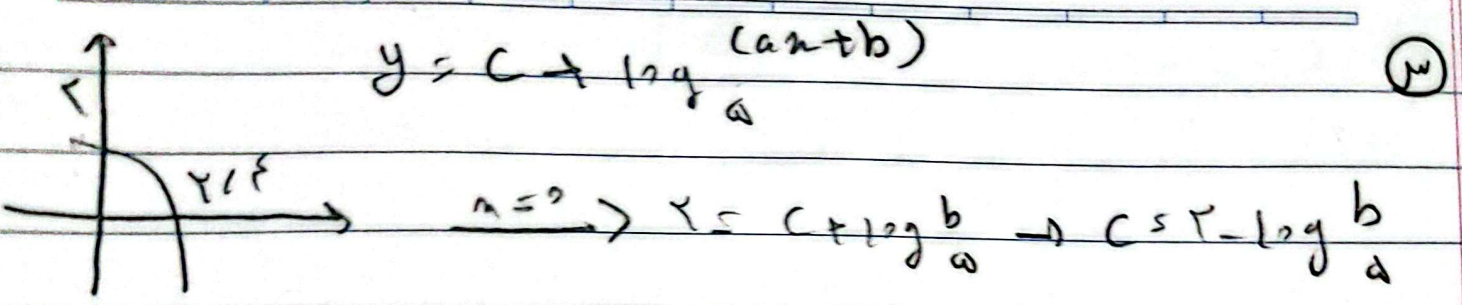 ③ y = c + log₅(ax+b)
۲
۲٫۴
x=۰ → ۲ = c + log₅ b → c = ۲ - log₅ b